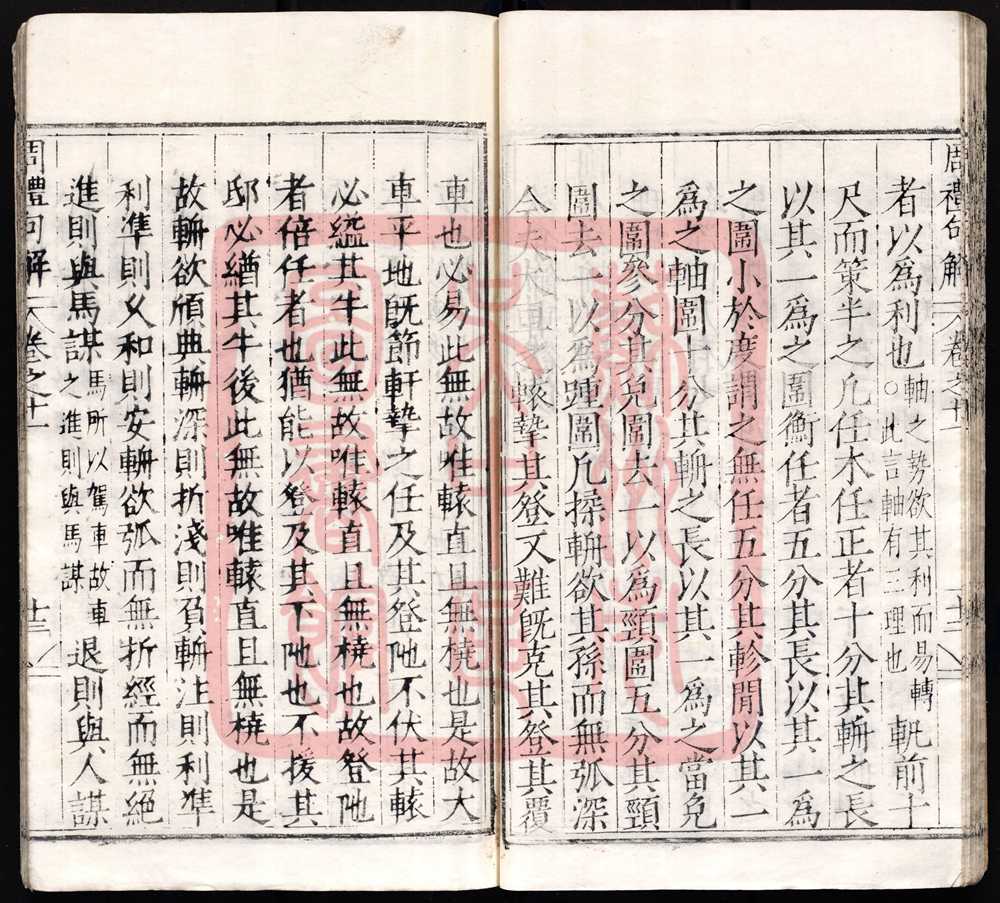 周禮句解 卷之十 十二
者以爲利也軸之勢欲其利而易轉○此言軸有三理也軓前十
尺而策半之凡任木任正者十分其輈之長
以其一爲之圍衡任者五分其長以其一爲
之圍小於度謂之無任五分其軫閒以其一
爲之軸圍十分其輈之長以其一爲之當兔
之圍參分其兔圍去一以爲頸圍五分其頸
圍去一以爲踵圍凡揉輈欲其孫而無弧深
今夫大車之轅摯其登又難既克其登其覆
車也必易此無故唯轅直且無橈也是故大
車平地既節軒摯之任及其登阤不伏其轅
必縊其牛此無故唯轅直且無橈也故登阤
者倍任者也猶能以登及其下阤也不援其
邸必緧其牛後此無故唯轅直且無橈也是
故輈欲頎典輈深則折淺則負輈注則利準
利準則久和則安輈欲弧而無折經而無絕
進則與馬謀馬所以駕車故車之進則與馬謀退則與人謀
周禮句解 卷之十一 十二